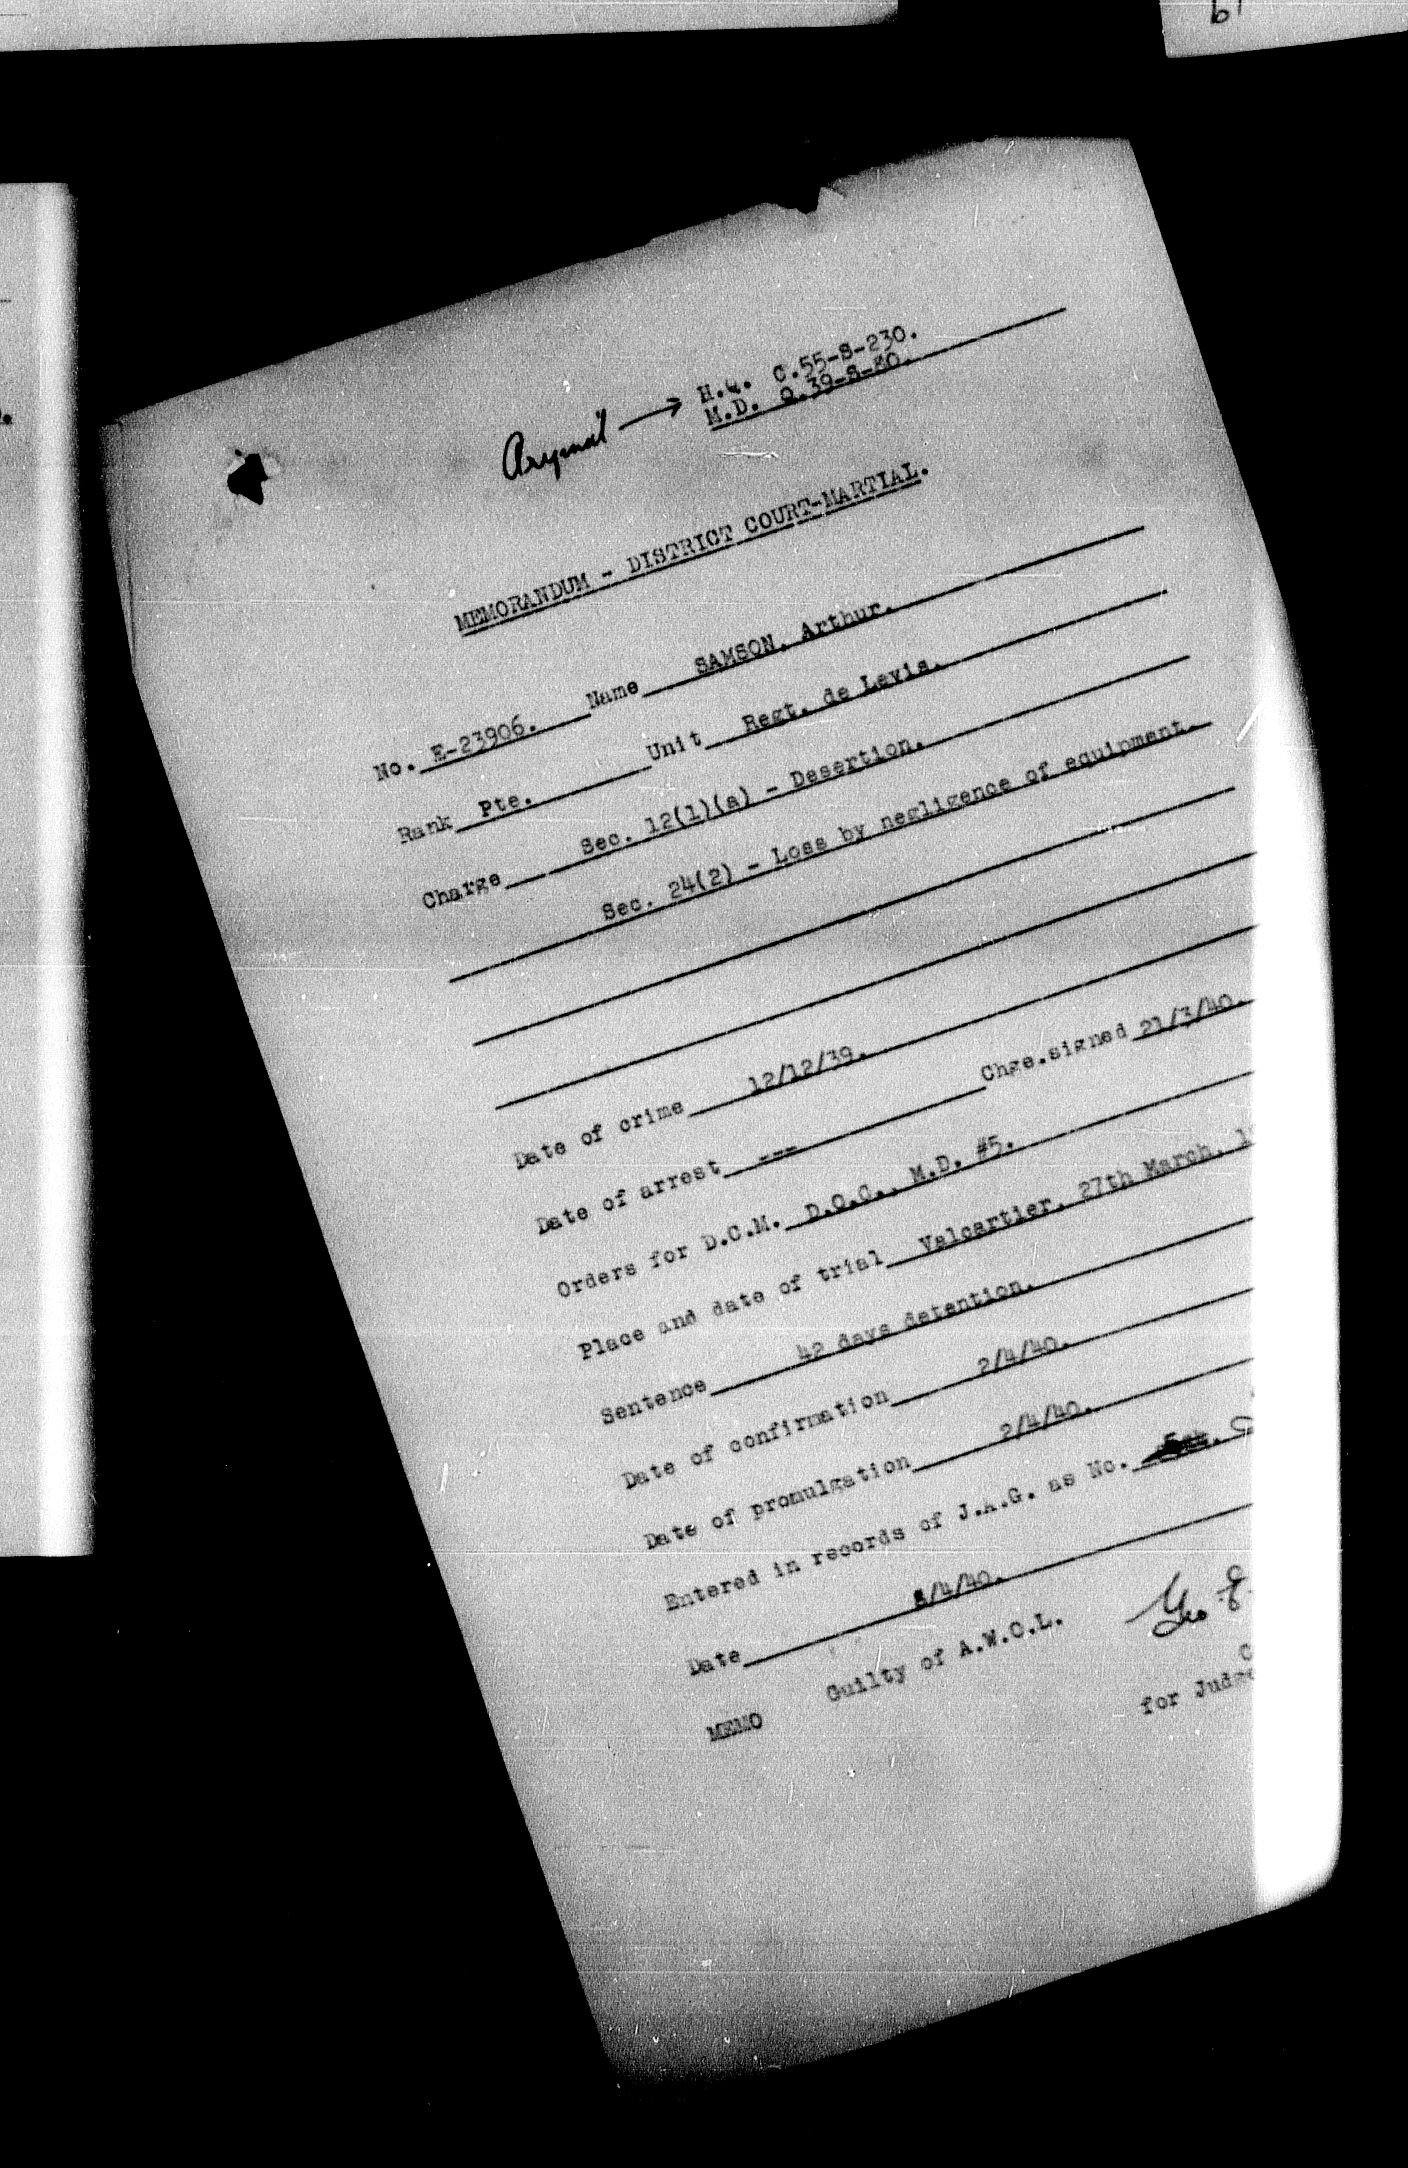 Original → H.Q. C.55-S-230.
M.D. Q.39-S-80.
MEMORANDUM - DISTRICT COURT-MARTIAL.
No. E-23906. Name SAMSON, Arthur.
Rank Pte. Unit Regt. de Levis.
Charge Sec. 12(1)(a) - Desertion.
Sec. 24(2) - Loss by negligence of equipment.
Date of crime 12/12/39.
Date of arrest --- Chge.signed 21/3/40.
Orders for D.C.M. D.O.C., M.D. #5.
Place and date of trial Valcartier, 27th March,
Sentence 42 days detention.
Date of confirmation 2/4/40.
Date of promulgation 2/4/40.
Entered in records of J.A.G. as No.
Date /4/40.
MEMO Guilty of A.W.O.L. Geo
for Judge